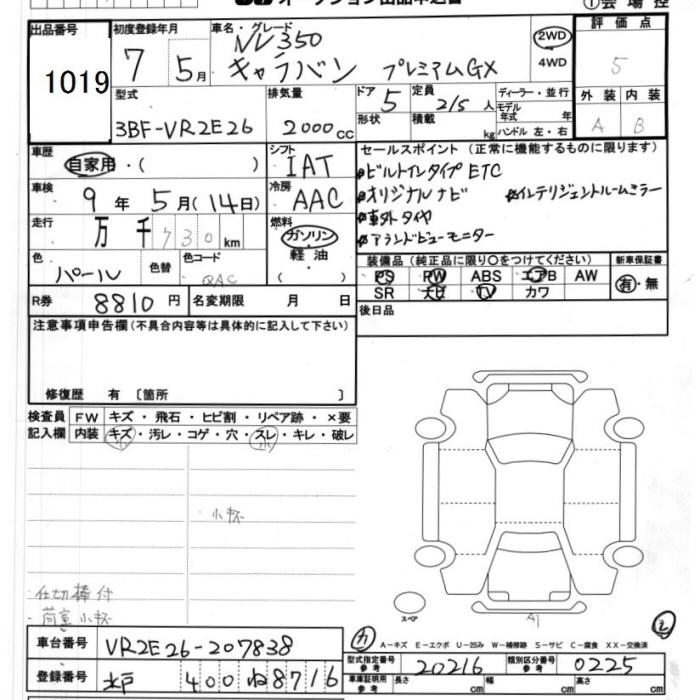 オークション出品申込書
①会場控
出品番号 1019
初度登録年月 7 5月
車名・グレード NV350 キャラバン プレミアムGX
2WD 4WD
評価点 5
型式 3BF-VR2E26
排気量 2000cc
ドア 5 定員 2/5人
形状 積載 kg
ディーラー・並行
モデル年式 年式
ハンドル 左・右
外装 内装
A B
車歴 自家用・( )
シフト IAT
セールスポイント(正常に機能するものに限ります)
ビルトインタイプETC
オリジナルナビ インテリジェントルームミラー
車外タイヤ
アラウンドビューモニター
車検 9年 5月(14日)
冷房 AAC
走行 万 千 730km
燃料 ガソリン 軽油 ( )
色 パール 色替 色コード QAC
装備品(純正品に限り○をつけてください) 新車保証書
PS PW ABS エアB AW 有・無
SR ナビ TV カワ
R券 8810円 名変期限 月 日
後日品
注意事項申告欄(不具合内容等は具体的に記入して下さい)
修復歴 有 〔箇所 〕
検査員記入欄 FW キズ・飛石・ヒビ割・リペア跡・×要
内装 キズ・汚レ・コゲ・穴・スレ・キレ・破レ
小杯
仕切棒付
荷室小杯
スペア
A1
A-キズ E-エクボ U-凹み W-補修跡 S-サビ C-腐食 XX-交換済
車台番号 VR2E26-207838
型式指定番号参考 20216 類別区分番号参考 0225
登録番号 水戸 400 ね8716
車庫証明用参考 長さ cm 幅 cm 高さ cm